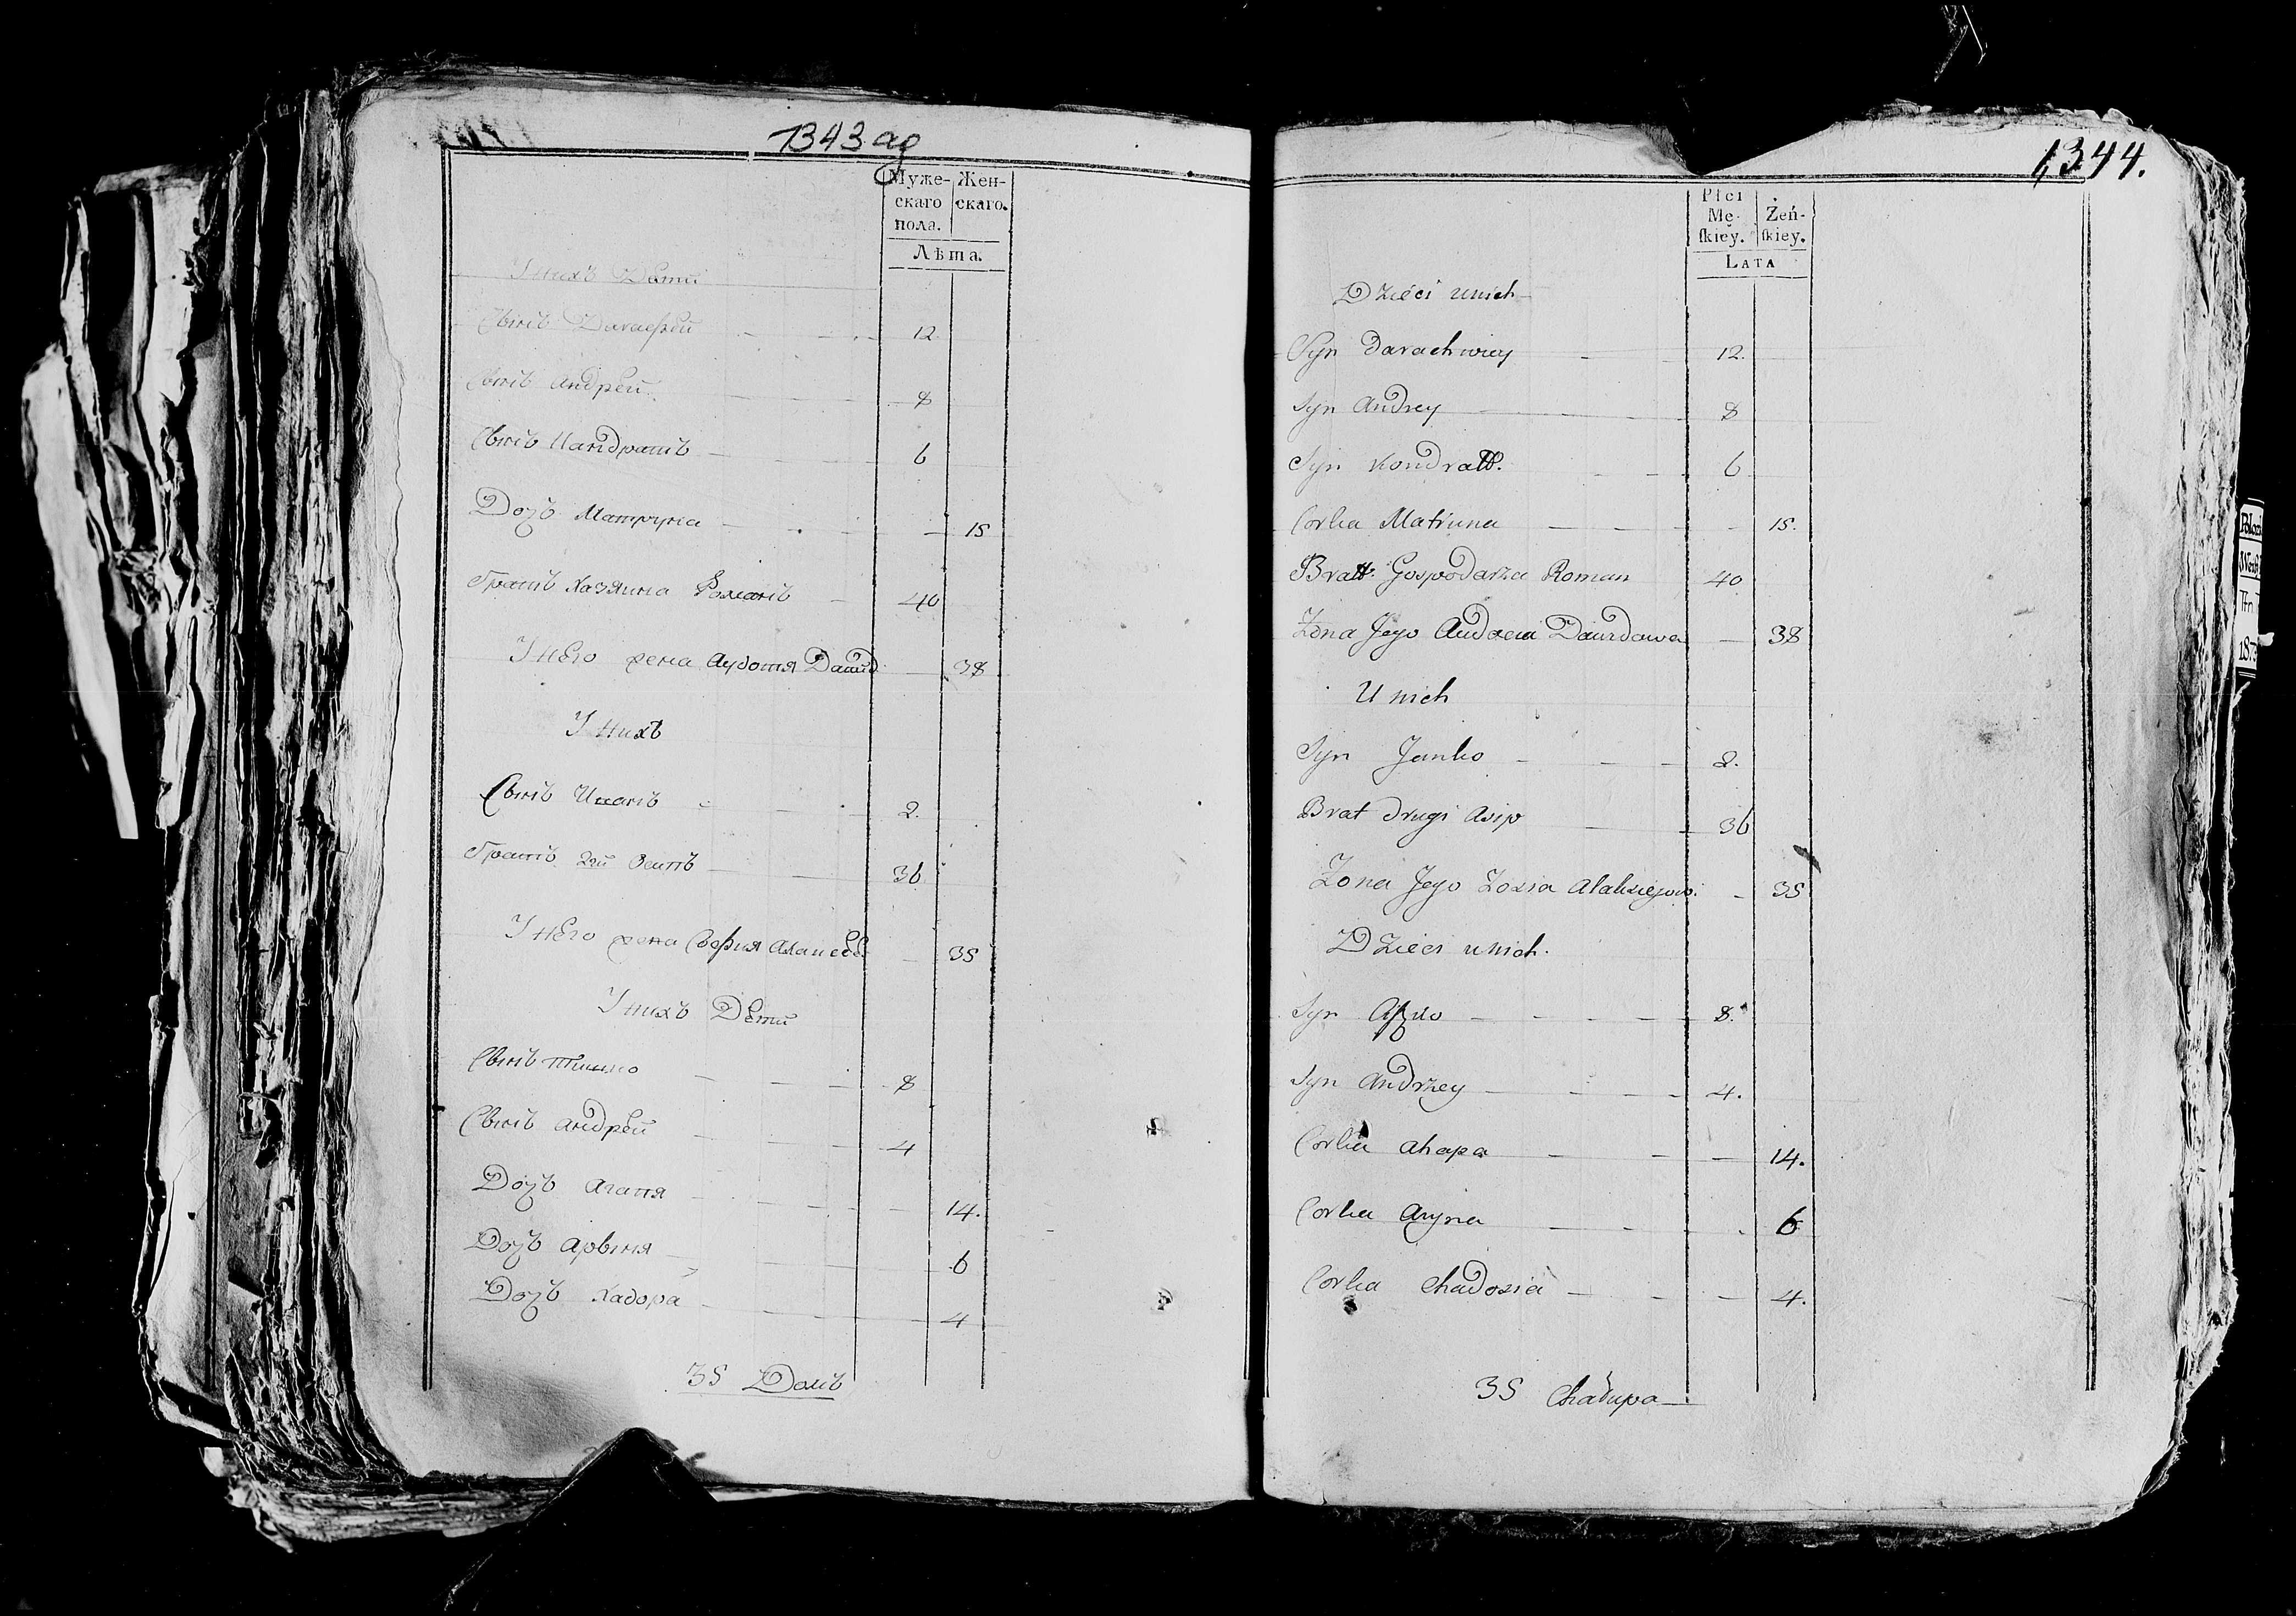 1343 ag
Муже-
скаго
пола.
Жен-
скаго.
Лѣта.
У нихъ Дѣти
Сынъ 12.
Сынъ Андрей 8
Сынъ Кандратъ 6
Дочь Матруна 15
Братъ хазяина Романъ 40
У него жена Аудотя Давид: 38
У нихъ
Сынъ Иванъ 2.
Братъ 2й Осипъ 36
У него жена София 35
У нихъ Дѣти
Сынъ 8
Сынъ Андрей 4
Дочь Агапя 14.
Дочь Арыня 6
Дочь Хадора 4
35 Домъ
1,344.
Płci
Mę-
ſkiey.
Żeń-
ſkiey.
LATA
Dzieci unich
Syn Darachwiey 12.
Syn Andrey 8
Syn Kondratt. 6
Corka Matruna 15.
Bratt Gospodarza Roman 40
Zona Jego Audocia Dawidowa 38
U nich
Syn Janko 2.
Brat drugi Asip 36
Zona Jego Zosia Alaksiejow: 35
Dzieci unich.
Syn 8.
Syn Andrzey 4.
Corka Ahapa 14.
Corka Aryna 6
Corka Chadosia 4.
35 Chałupa
Polozk
187